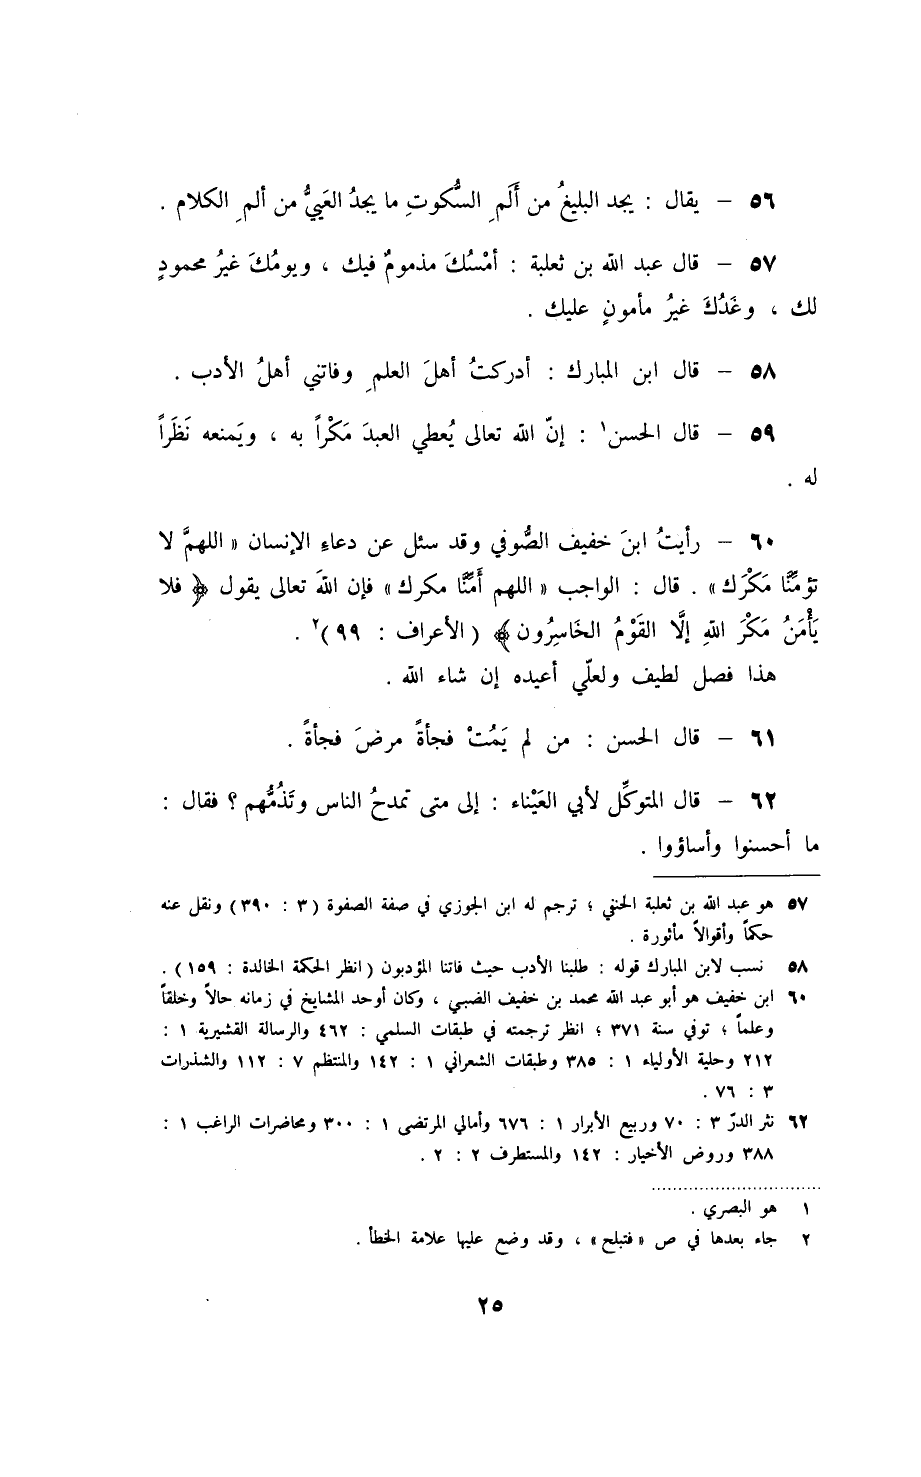 ٥٦ – يقال : يجد البليغُ من أَلَمِ السُّكوتِ ما يجدُ العَيِيُّ من ألمِ الكلام .
٥٧ – قال عبد الله بن ثعلبة : أمْسُكَ مذمومٌ فيك ، ويومُكَ غيرُ محمودٍ
لك ، وغَدُكَ غيرُ مأمونٍ عليك .
٥٨ – قال ابن المبارك : أدركتُ أهلَ العلمِ وفاتني أهلُ الأدب .
٥٩ – قال الحسن١ : إنّ الله تعالى يُعطي العبدَ مَكْراً به ، ويَمنعه نَظَراً
له .
٦٠ – رأيتُ ابنَ خفيف الصُّوفي وقد سئل عن دعاءِ الإنسان « اللهمَّ لا
تؤمِّنَّا مَكْرَك » . قال : الواجب « اللهم أَمِّنَّا مكرك » فإن اللهَ تعالى يقول ﴿ فلا
يَأْمَنُ مَكْرَ اللهِ إلَّا القَوْمُ الخَاسِرُون ﴾ ( الأعراف : ٩٩ )٢ .
هذا فصل لطيف ولعلّي أعيده إن شاء الله .
٦١ – قال الحسن : من لم يَمُتْ فجأةً مرضَ فجأةً .
٦٢ – قال المتوكِّل لأبي العَيْناء : إلى متى تمدحُ الناس وتَذُمُّهم ؟ فقال :
ما أحسنوا وأساؤوا .
٥٧ هو عبد الله بن ثعلبة الحنفي ؛ ترجم له ابن الجوزي في صفة الصفوة ( ٣ : ٣٩٠ ) ونقل عنه
حكماً وأقوالاً مأثورة .
٥٨ نسب لابن المبارك قوله : طلبنا الأدب حيث فاتنا المؤدبون ( انظر الحكمة الخالدة : ١٥٩ ) .
٦٠ ابن خفيف هو أبو عبد الله محمد بن خفيف الضبي ، وكان أوحد المشايخ في زمانه حالاً وخلقاً
وعلماً ؛ توفي سنة ٣٧١ ؛ انظر ترجمته في طبقات السلمي : ٤٦٢ والرسالة القشيرية ١ :
٢١٢ وحلية الأولياء ١ : ٣٨٥ وطبقات الشعراني ١ : ١٤٢ والمنتظم ٧ : ١١٢ والشذرات
٣ : ٧٦ .
٦٢ نثر الدرّ ٣ : ٧٠ وربيع الأبرار ١ : ٦٧٦ وأمالي المرتضى ١ : ٣٠٠ ومحاضرات الراغب ١ :
٣٨٨ وروض الأخيار : ١٤٢ والمستطرف ٢ : ٢ .
١ هو البصري .
٢ جاء بعدها في ص « فتبلح » ، وقد وضع عليها علامة الخطأ .
٢٥